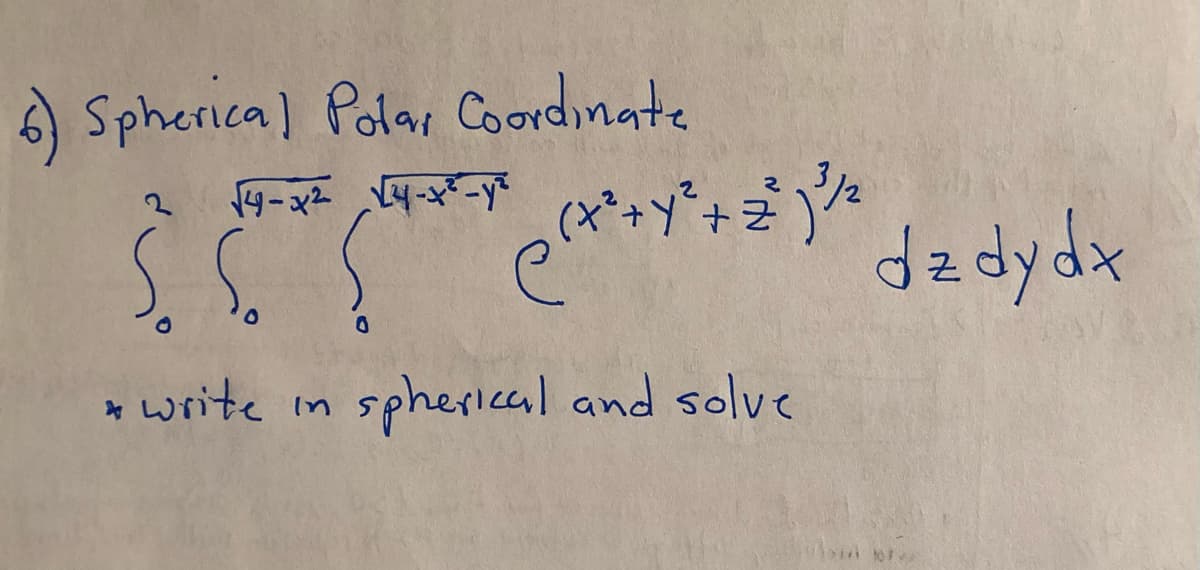 6) Spherical Polar Coordinate
∫₀² ∫₀^√(4-x²) ∫₀^√(4-x²-y²) e^(x²+y²+z²)^3/2 dz dy dx
* write in spherical and solve